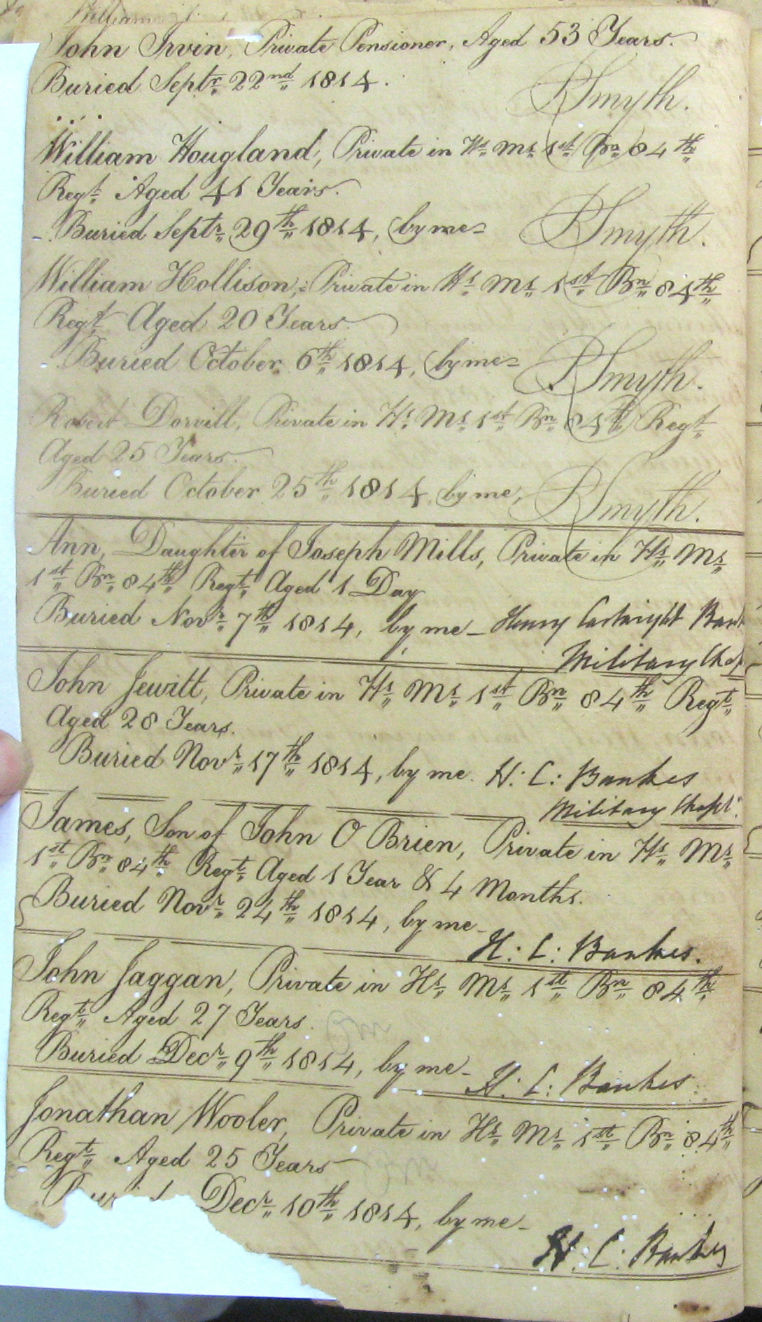 William
John Irvin, Private Pensioner, Aged 53 Years.
Buried Septr 22nd 1814.
R Smyth.
William Hougland, Private in Hs Ms 1st Bn 84th
Regt Aged 41 Years.
Buried Septr 29th 1814, by me R Smyth.
William Hollison, Private in Hs Ms 1st Bn 84th
Regt Aged 20 Years.
Buried October 6th 1814, by me R Smyth.
Robert Dorvill, Private in Hs Ms 1st Bn 84th Regt
Aged 25 Years.
Buried October 25th 1814, by me, R Smyth.
Ann, Daughter of Joseph Mills, Private in Hs Ms
1st Bn 84th Regt Aged 1 Day
Buried Novr 7th 1814, by me - Henry Cartwright
Military
John Jewitt, Private in Hs Ms 1st Bn 84th Regt
Aged 28 Years.
Buried Novr 17th 1814, by me. H: C: Bankes
Military Chapn.
James, Son of John O Brien, Private in Hs Ms
1st Bn 84th Regt Aged 1 Year & 4 Months.
Buried Novr 24th 1814, by me -
H: C: Bankes.
John Jaggan, Private in Hs Ms 1st Bn 84th
Regt Aged 27 Years.
Buried Decr 9th 1814, by me - H: C: Bankes.
Jonathan Wooler, Private in Hs Ms 1st Bn 84th
Regt Aged 25 Years
Decr 10th 1814, by me -
H. C: Bankes